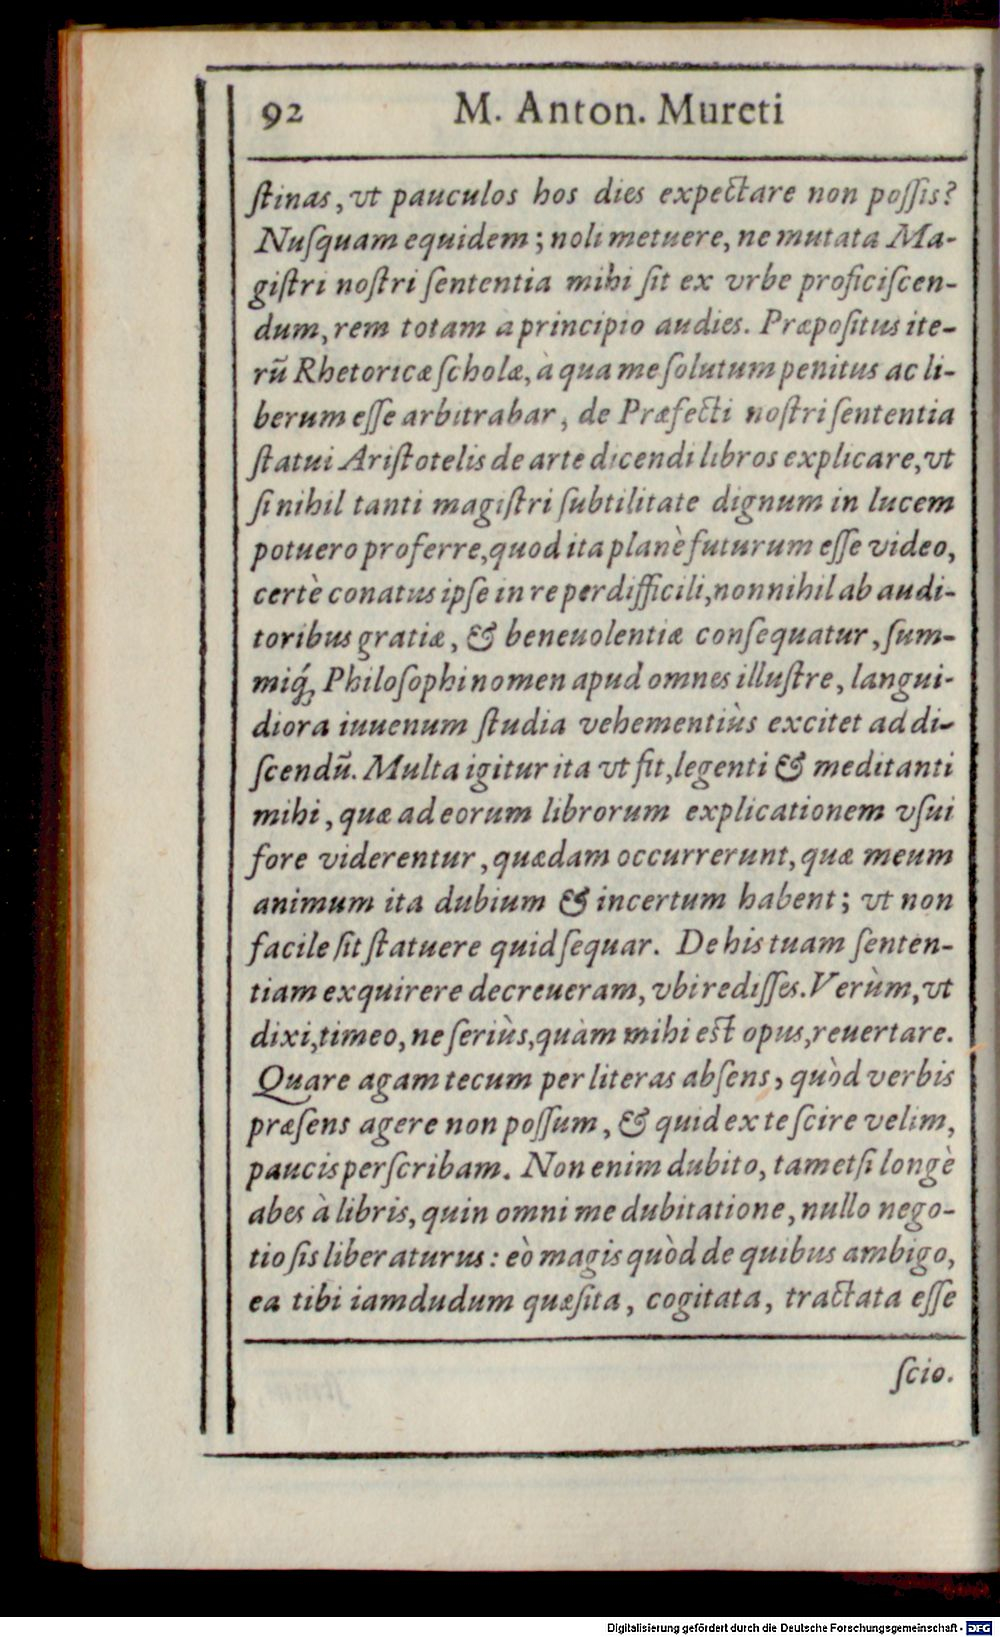 92 M. Anton. Mureti
ſtinas, vt pauculos hos dies expectare non poſſis?
Nuſquam equidem; noli metuere, ne mutata Ma-
giſtri noſtri ſententia mihi ſit ex vrbe proficiſcen-
dum, rem totam a principio audies. Præpoſitus ite-
rũ Rhetoricæ ſcholæ, à qua me ſolutum penitus ac li-
berum eſſe arbitrabar, de Præfecti noſtri ſententia
ſtatui Ariſtotelis de arte dicendi libros explicare, vt
ſi nihil tanti magiſtri ſubtilitate dignum in lucem
potuero proferre, quod ita planè futurum eſſe video,
certè conatus ipſe in re perdifficili, nonnihil ab audi-
toribus gratiæ, & beneuolentiæ conſequatur, ſum-
miq́; Philoſophi nomen apud omnes illuſtre, langui-
diora iuuenum ſtudia vehementiùs excitet ad di-
ſcendũ. Multa igitur ita vt fit, legenti & meditanti
mihi, quæ ad eorum librorum explicationem vſui
fore viderentur, quædam occurrerunt, quæ meum
animum ita dubium & incertum habent; vt non
facile ſit ſtatuere quid ſequar. De his tuam ſenten-
tiam exquirere decreueram, vbi rediſſes. Verùm, vt
dixi, timeo, ne ſeriùs, quàm mihi eſt opus, reuertare.
Quare agam tecum per literas abſens, quòd verbis
præſens agere non poſſum, & quid ex te ſcire velim,
paucis perſcribam. Non enim dubito, tametſi longè
abes à libris, quin omni me dubitatione, nullo nego-
tio ſis liberaturus: eò magis quòd de quibus ambigo,
ea tibi iamdudum quæſita, cogitata, tractata eſſe
ſcio.
Digitalisierung gefördert durch die Deutsche Forschungsgemeinschaft - DFG